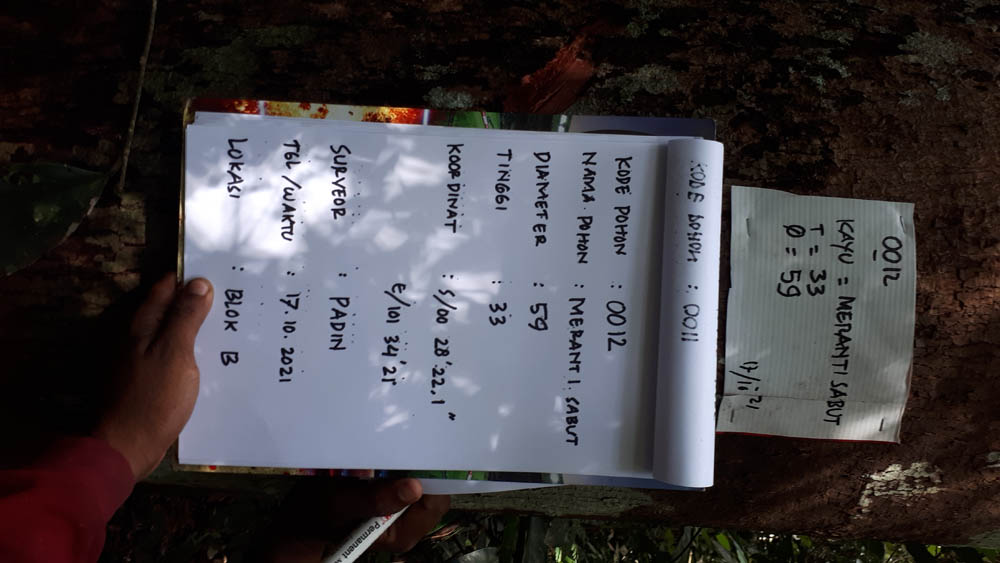 0012
KAYU = MERANTI SABUT
T = 33
Ø = 59
17/10 21
KODE POHON : 0011
KODE POHON : 0012
NAMA POHON : MERANTI SABUT
DIAMETER : 59
TINGGI : 33
KOORDINAT : S/00 28'22,1"
E/101 34'21
SURVEOR : PADIN
TGL/WAKTU : 17.10.2021
LOKASI : BLOK B
Permanent